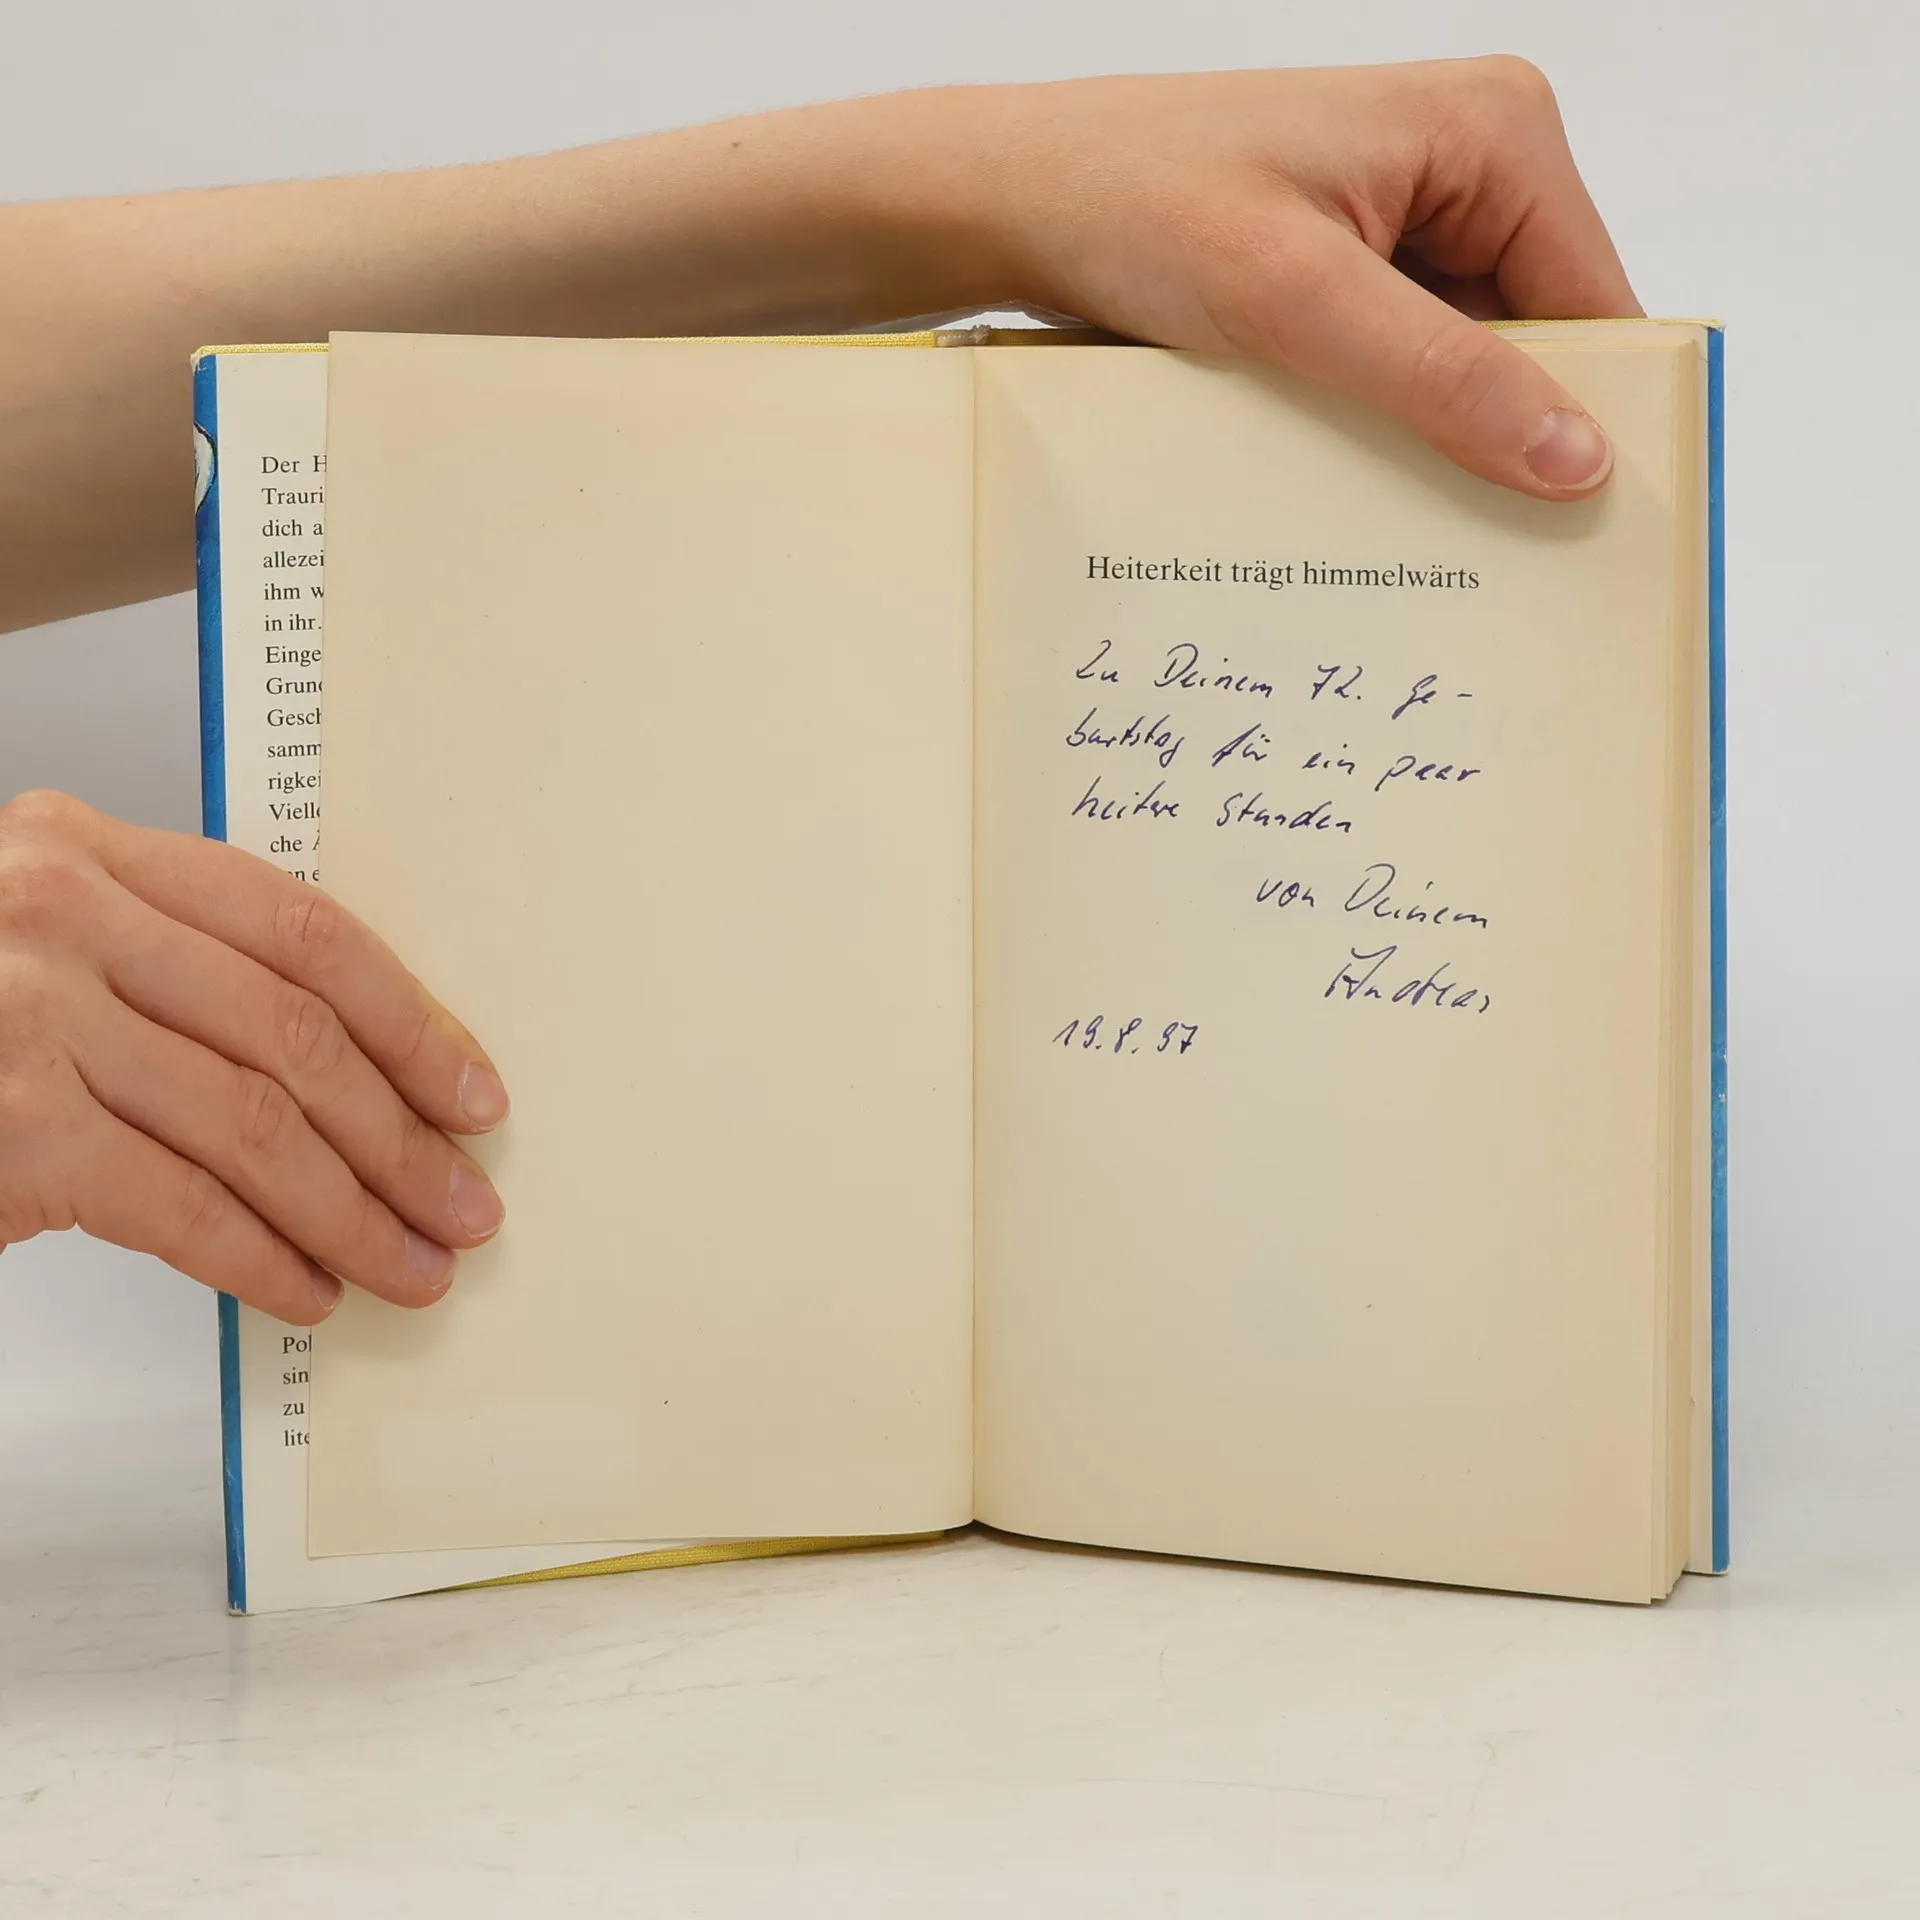 Der H
Trauri
dich a
allezei
ihm w
in ihr.
Einge
Grund
Gesch
samm
rigkei
Vielle
che Ä
en e
Pol
sin
zu
lite
Heiterkeit trägt himmelwärts
Zu Deinem 72. Ge-
burtstag für ein paar
heitere Stunden
von Deinem
Andreas
19.8.97